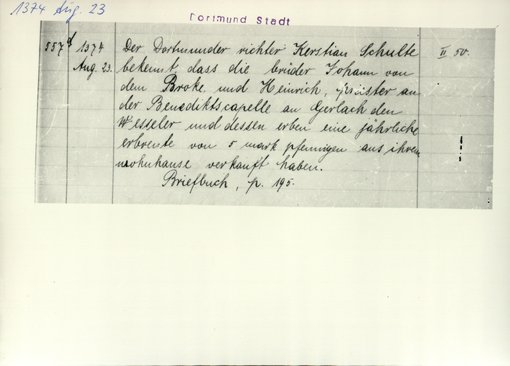 1374 Aug. 23
Dortmund Stadt
557d 1374 Der Dortmunder richter Kerstian Schulte II 50.
Aug. 23. bekennt, dass die brüder Johann von
dem Broke und Heinrich, priester an
der Benediktscapelle an Gerlach den
Wesseler und dessen erben eine jährliche
erbrente von 5 mark pfennigen aus ihrem
wohnhause verkauft haben.
Briefbuch, p. 195.